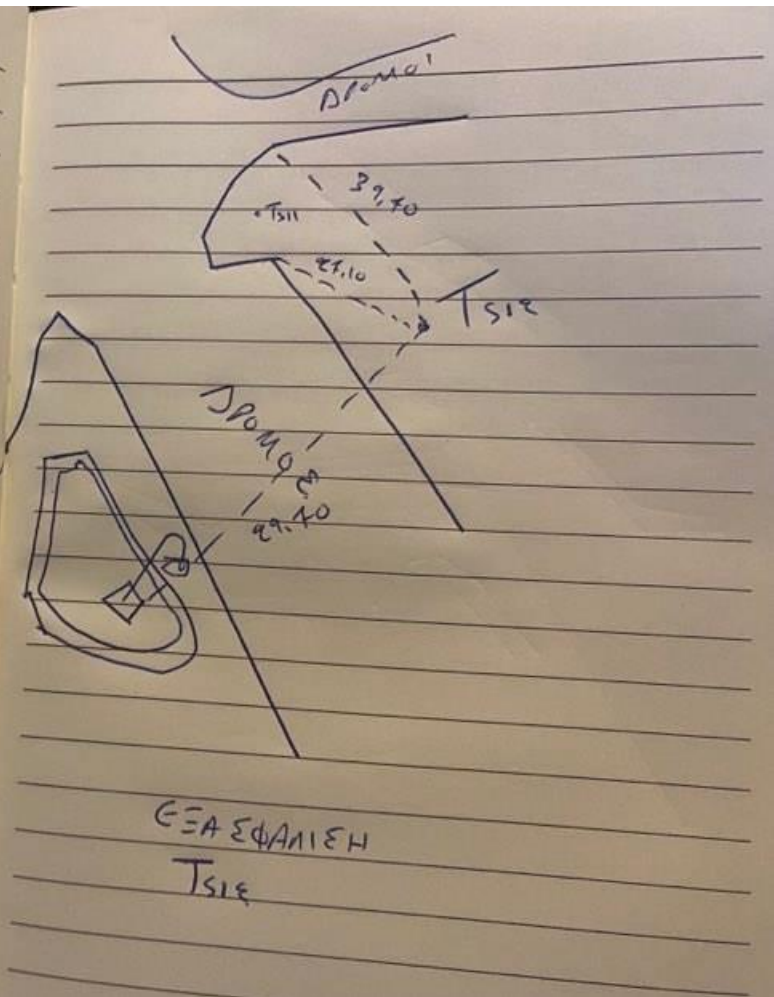 ΔΡΟΜΟΣ
39,70
TS11
27,10
TS12
ΔΡΟΜΟΣ
ΕΞΑΣΦΑΛΙΣΗ
TS12